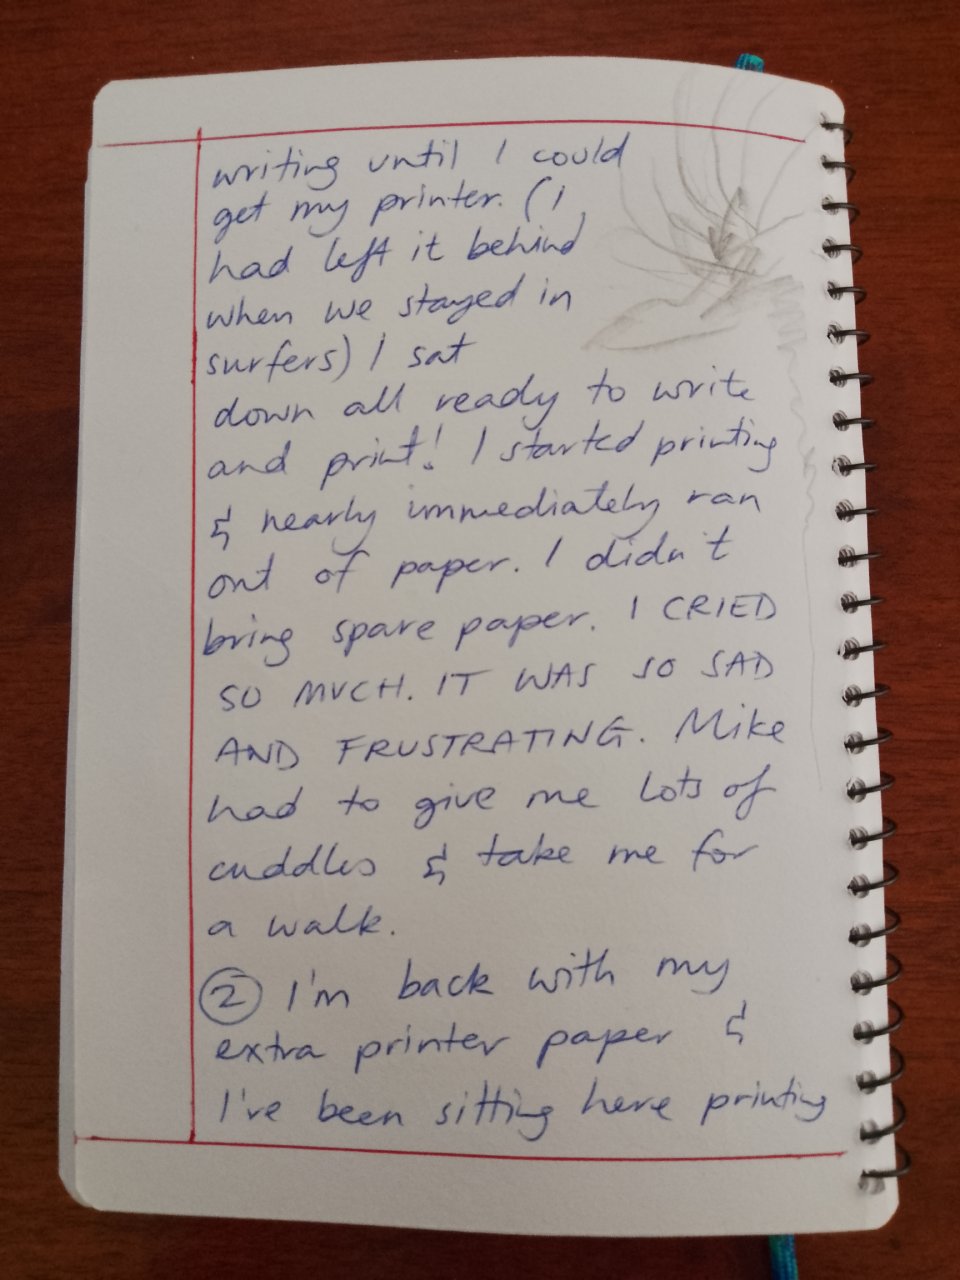 writing until I could
get my printer. (I
had left it behind
when we stayed in
surfers) I sat
down all ready to write
and print! I started printing
& nearly immediately ran
out of paper. I didn't
bring spare paper. I CRIED
SO MUCH. IT WAS SO SAD
AND FRUSTRATING. Mike
had to give me lots of
cuddles & take me for
a walk.
② I'm back with my
extra printer paper &
I've been sitting here printing